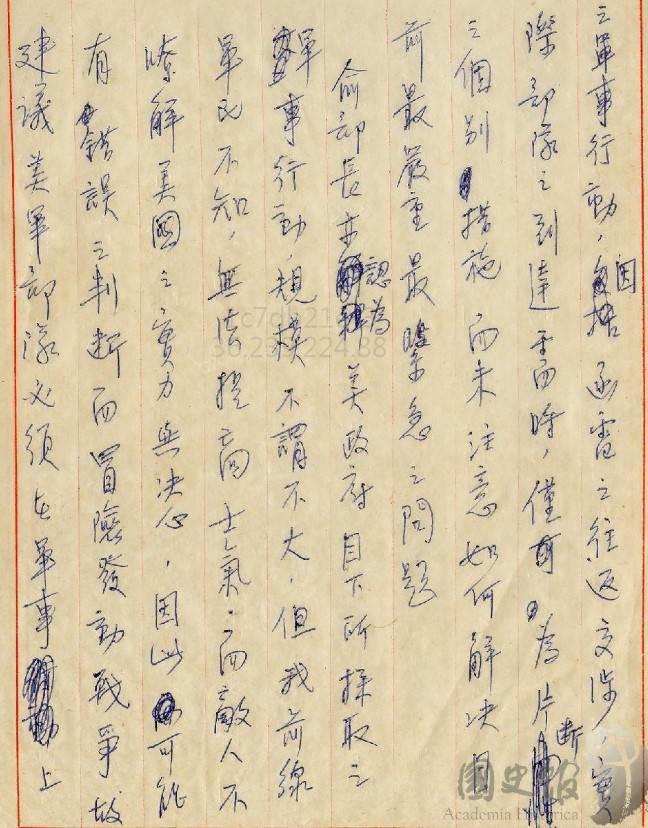 之軍事行動，因函電之往返交涉，實
際部隊之到達需時，僅為片斷
之個別措施而未注意如何解決目
前最嚴重最緊急之問題
俞部長亦認為美政府目下所採取之
軍事行動，規模不謂不大，但我前線
軍民不知，無法提高士氣，而敵人不
瞭解美國之實力與決心，因此可能
有錯誤之判斷而冒險發動戰爭故
建議美軍部隊必須在軍事上
國史館
Academia Historica